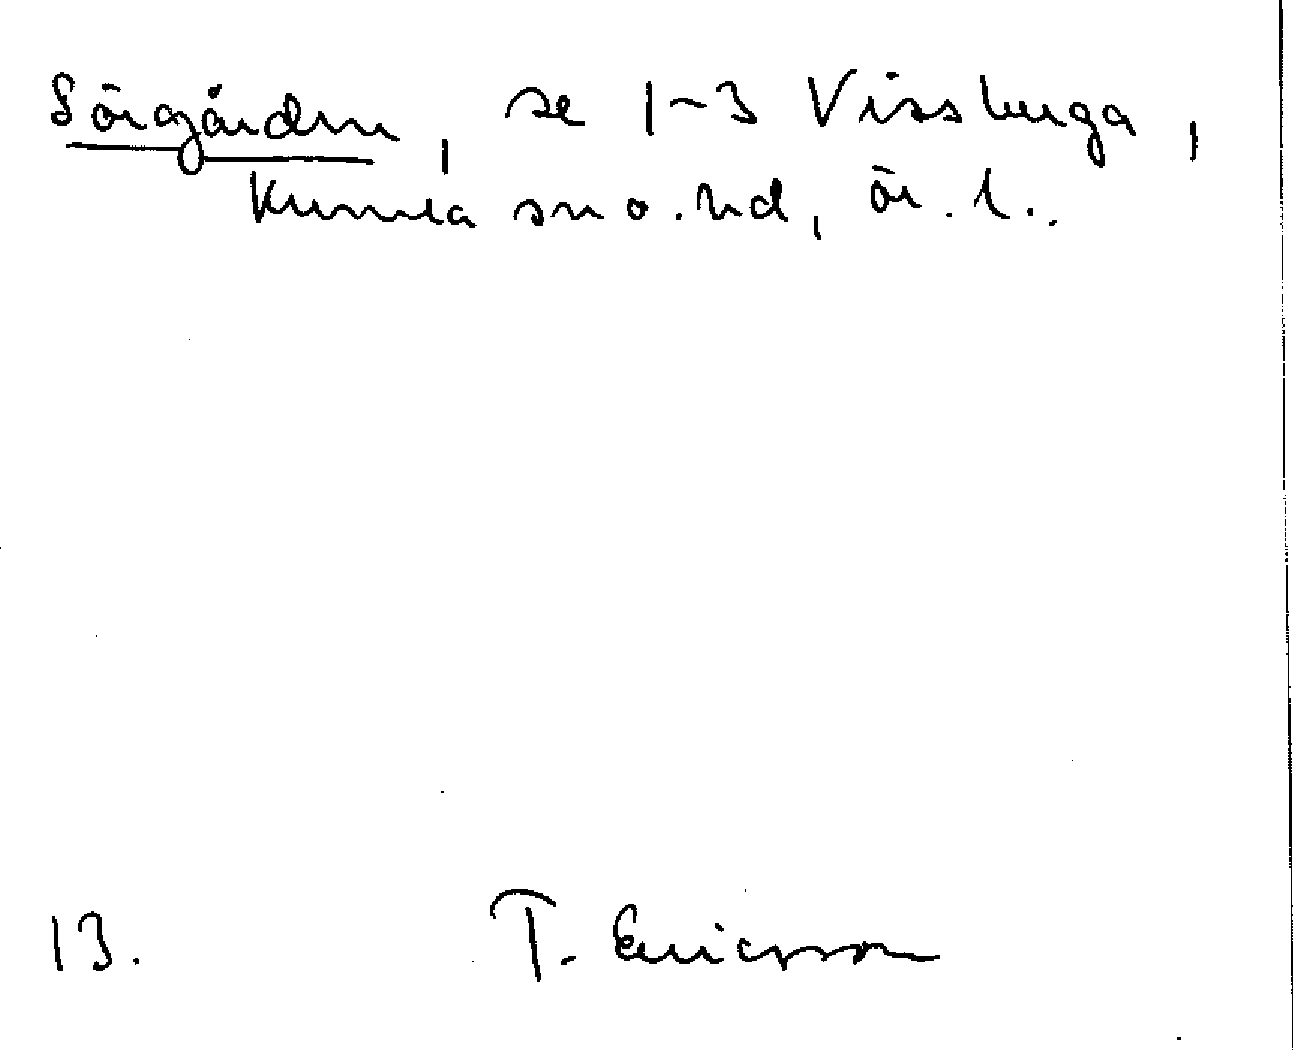 Sörgården, se 1-3 Vissberga,
Kumla sn o. hd, ör. l..
13. T. Ericsson